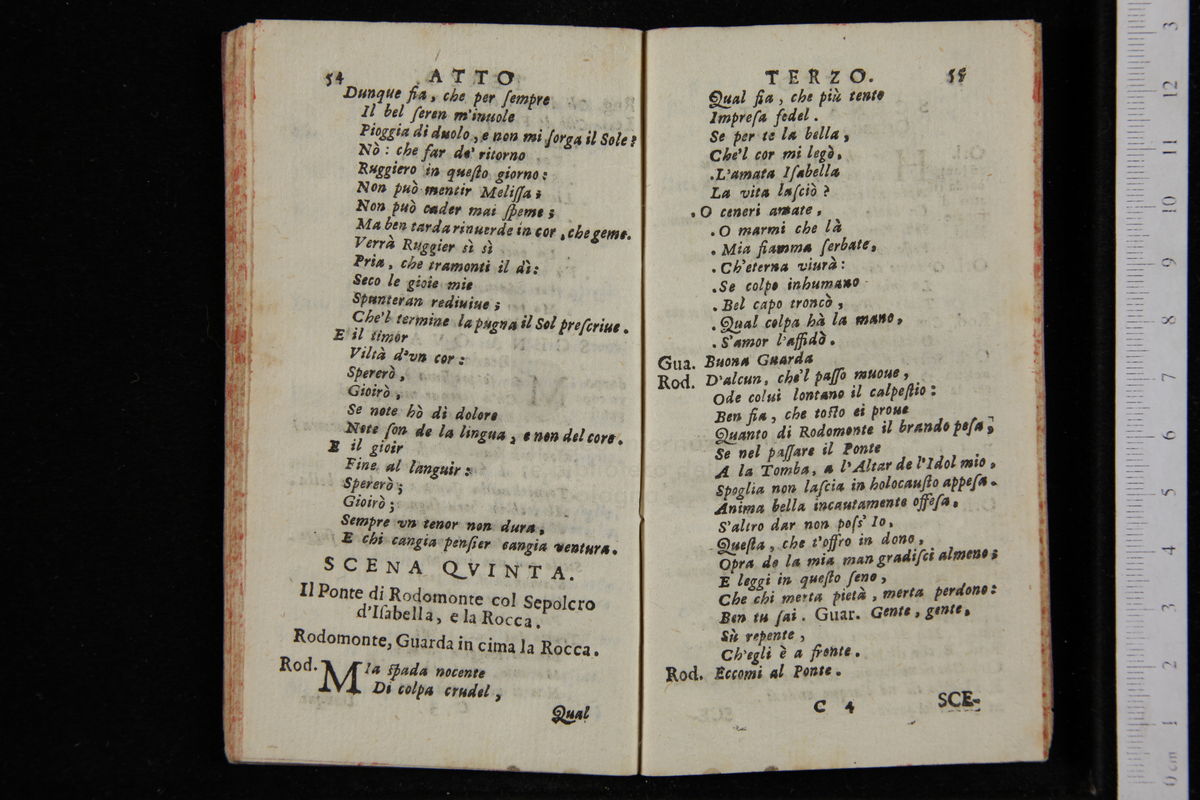 54 ATTO
Dunque fia, che per ſempre
Il bel ſeren m'inuole
Pioggia di duolo, e non mi ſorga il Sole?
Nò: che far de' ritorno
Ruggiero in queſto giorno:
Non può mentir Meliſſa;
Non può cader mai ſpeme;
Ma ben tarda rinuerde in cor, che geme.
Verrà Ruggier sì sì
Pria, che tramonti il dì:
Seco le gioie mie
Spunteran rediuiue;
Che'l termine la pugna il Sol preſcriue.
E il timor
Viltà d'vn cor:
Spererò,
Gioirò,
Se note hò di dolore
Note ſon de la lingua, e non del core.
E il gioir
Fine al languir:
Spererò;
Gioirò;
Sempre vn tenor non dura,
E chi cangia penſier cangia ventura.
SCENA QVINTA.
Il Ponte di Rodomonte col Sepolcro
d'Iſabella, e la Rocca.
Rodomonte, Guarda in cima la Rocca.
Rod. MIa ſpada nocente
Di colpa crudel,
Qual
TERZO. 55
Qual fia, che più tente
Impreſa fedel.
Se per te la bella,
Che'l cor mi legò,
.L'amata Iſabella
La vita laſciò?
.O ceneri amate,
.O marmi che là
.Mia fiamma ſerbate,
.Ch'eterna viurà:
.Se colpo inhumano
.Bel capo troncò,
.Qual colpa hà la mano,
.S'amor l'affidò.
Gua. Buona Guarda
Rod. D'alcun, che'l paſſo muoue,
Ode colui lontano il calpeſtio:
Ben fia, che toſto ei proue
Quanto di Rodomonte il brando peſa;
Se nel paſſare il Ponte
A la Tomba, a l'Altar de l'Idol mio,
Spoglia non laſcia in holocauſto appeſa.
Anima bella incautamente offeſa,
S'altro dar non poſs' Io,
Queſta, che t'offro in dono,
Opra de la mia man gradiſci almeno;
E leggi in queſto ſeno,
Che chi merta pietà, merta perdono:
Ben tu ſai. Guar. Gente, gente,
Sù repente,
Ch'egli è a fronte.
Rod. Eccomi al Ponte.
C 4 SCE-
12
11
10
9
8
7
6
5
4
3
2
1
0 cm
3